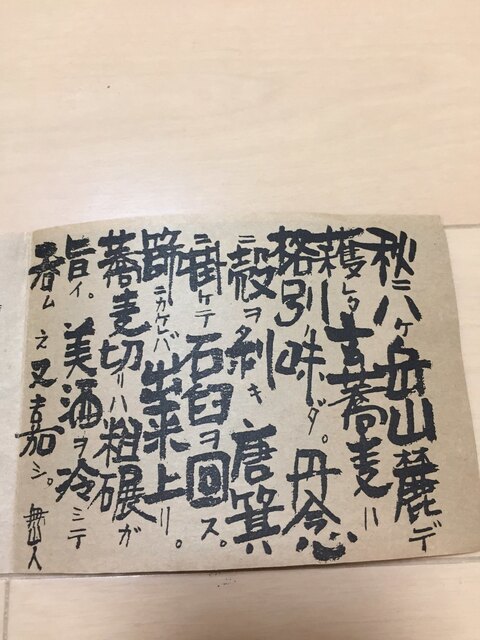 秋ニ八ヶ岳山麓デ
穫レタ玄蕎麦ハ
格別ノ味ダ。丹念
ニ殻ヲ剥キ唐箕
ニ掛ケテ石臼ヲ回ス。
篩ニカケレバ出来上リ。
蕎麦切リハ粗碾ガ
旨イ。美酒ヲ冷ニテ
ム又嘉シ。